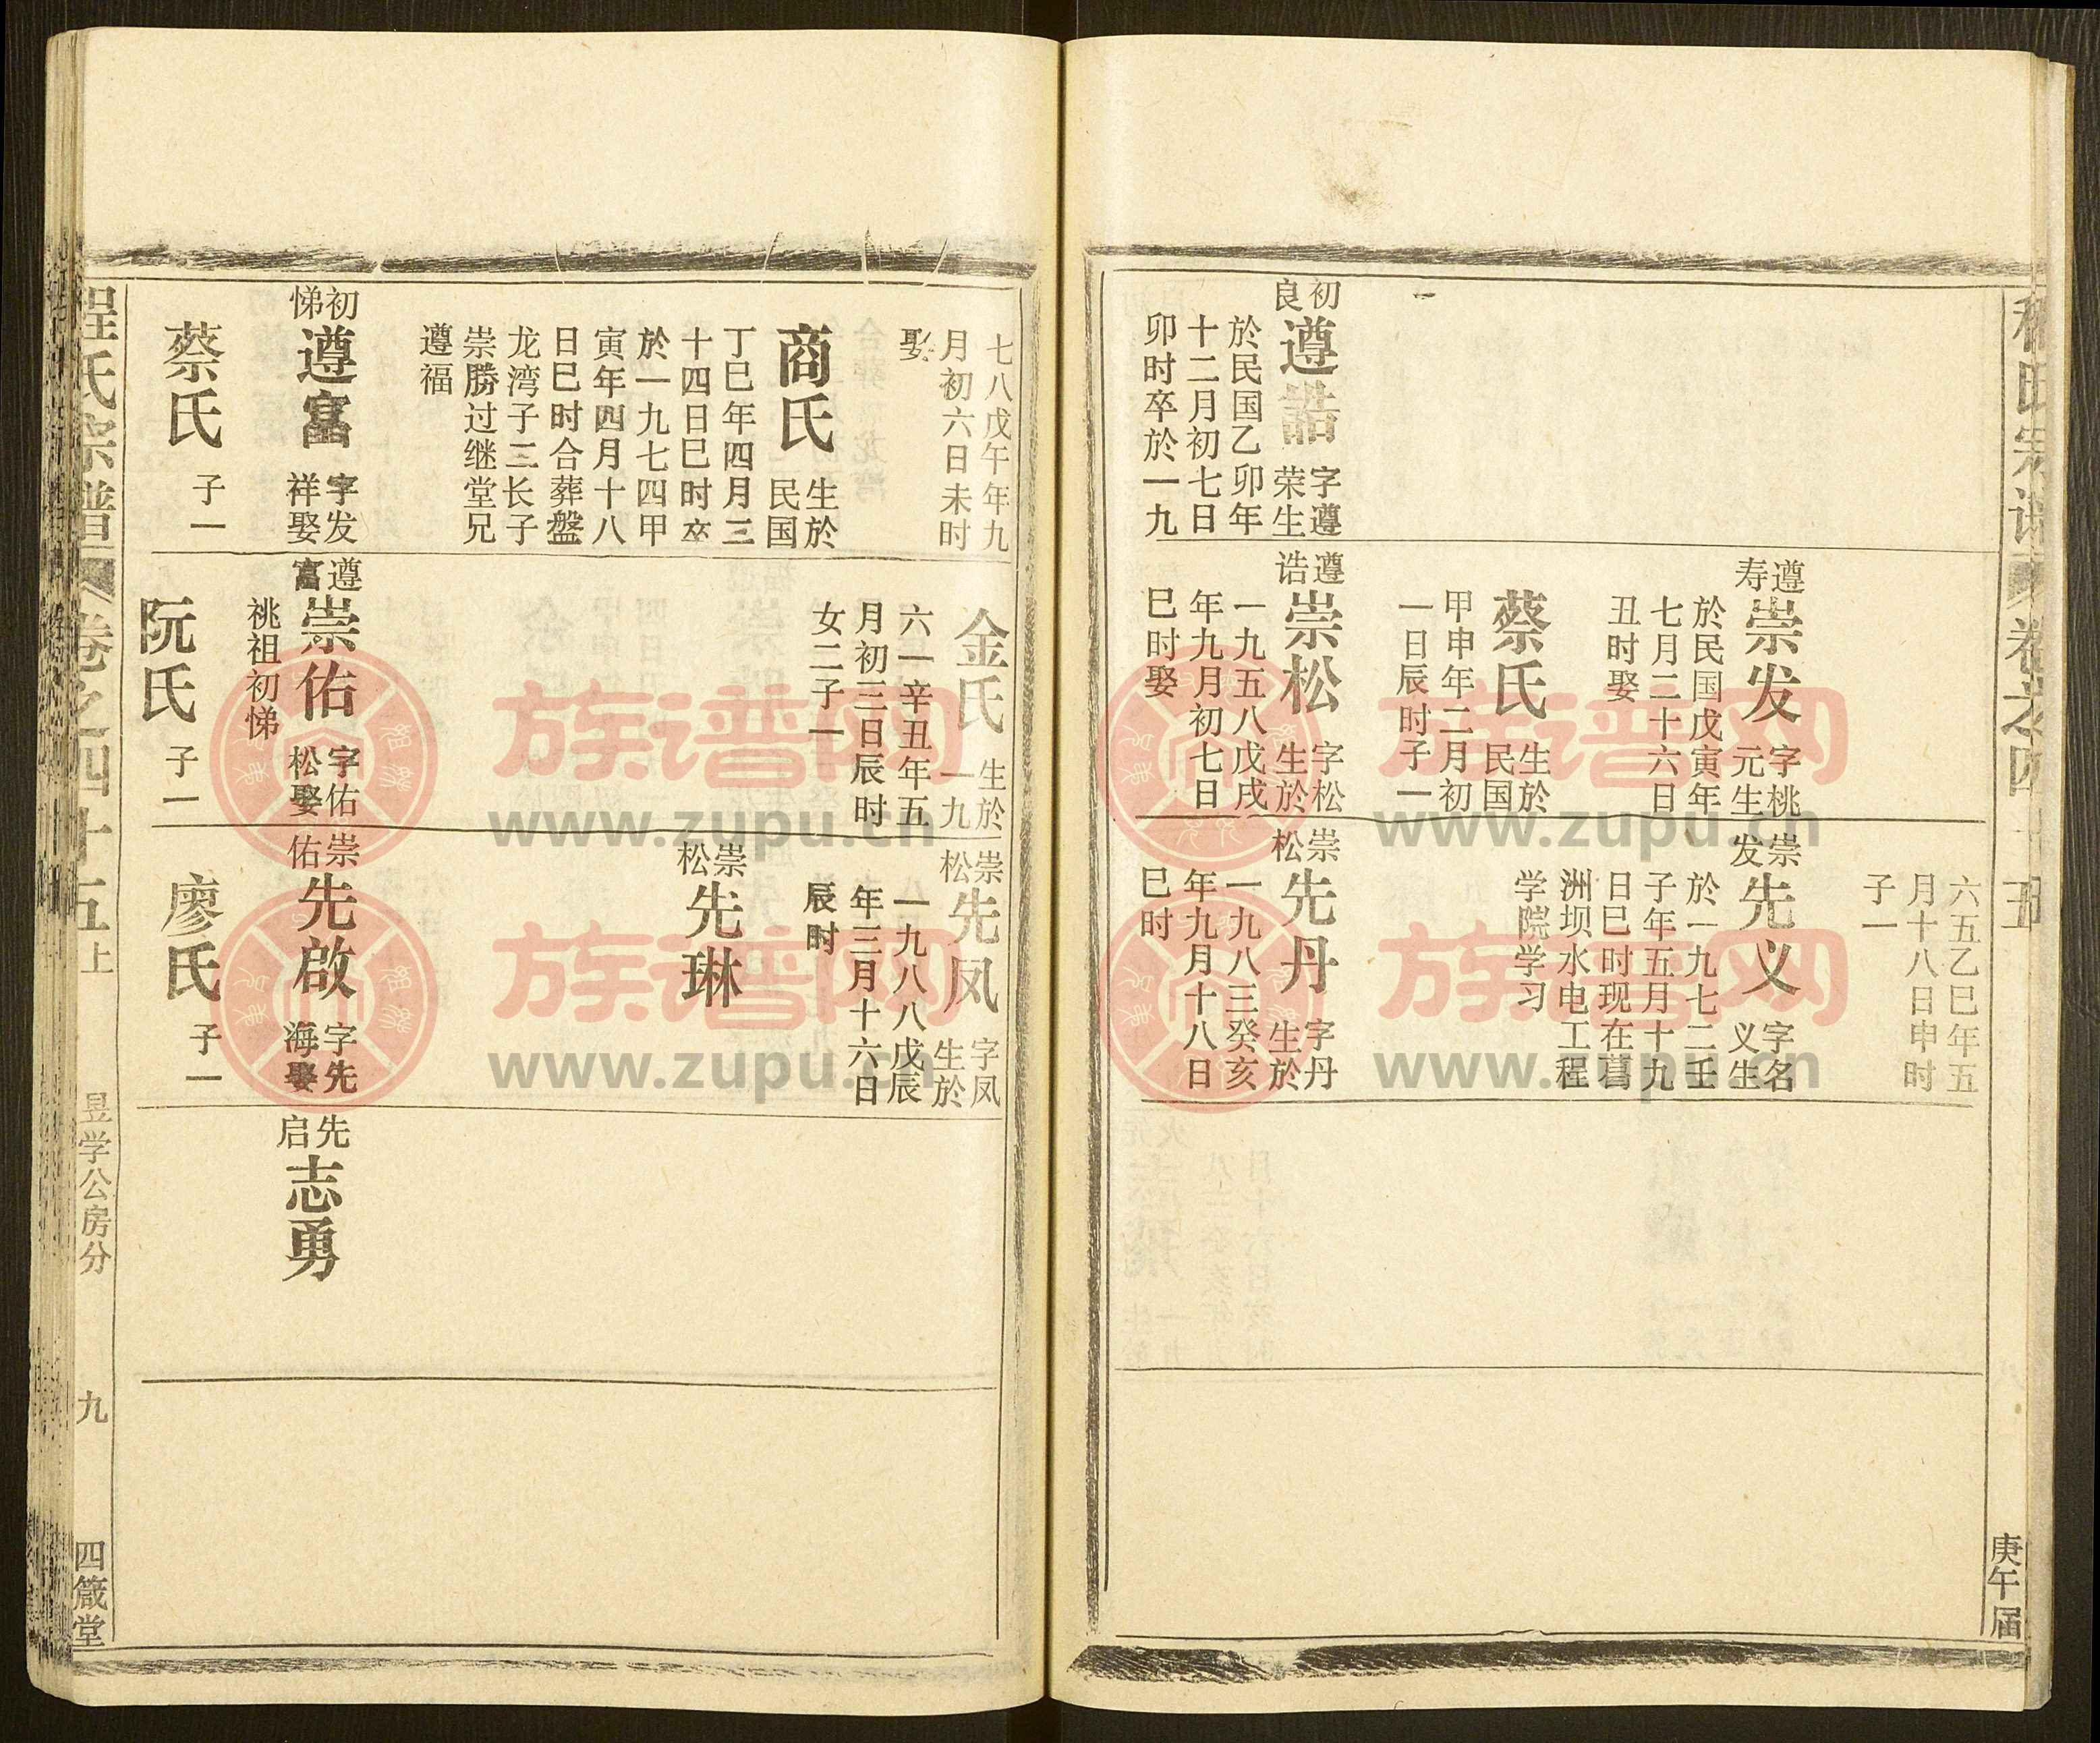 庚午届
初良
遵誥
字遵
荣生
於民国乙卯年
十二月初七日
卯时卒於一九
遵寿
崇发
字桃
元生
於民国戊寅年
七月二十六日
丑时娶
蔡氏
生於
民国
甲申年二月初
一日辰时子一
遵诰
崇松
字松
生於
一九五八戊戌
年九月初七日
巳时娶
六五乙巳年五
月十八日申时
子一
崇发
先义
字名
义生
於一九七二壬
子年五月十九
日巳时现在葛
洲坝水电工程
学院学习
崇松
先丹
字丹
生於
一九八三癸亥
年九月十八日
巳时
七八戊午年九
月初六日未时
娶
商氏
生於
民国
丁巳年四月三
十四日巳时卒
於一九七四甲
寅年四月十八
日巳时合葬盤
龙湾子三长子
崇勝过继堂兄
遵福
初悌
遵富
字发
祥娶
蔡氏
子一
金氏
生於
一九
六一辛丑年五
月初三日辰时
女二子一
遵富
崇佑
字佑
松娶
桃祖初悌
阮氏
子一
崇松
先凤
字凤
生於
一九八八戊辰
年三月十六日
辰时
崇松
先琳
崇佑
先啟
字先
海娶
廖氏
子一
先启
志勇
程氏宗譜
卷之四十五上
昱学公房分
九
四箴堂
族谱网
www.zupu.cn
族谱网
www.zupu.cn
族谱网
www.zupu.cn
族谱网
www.zupu.cn